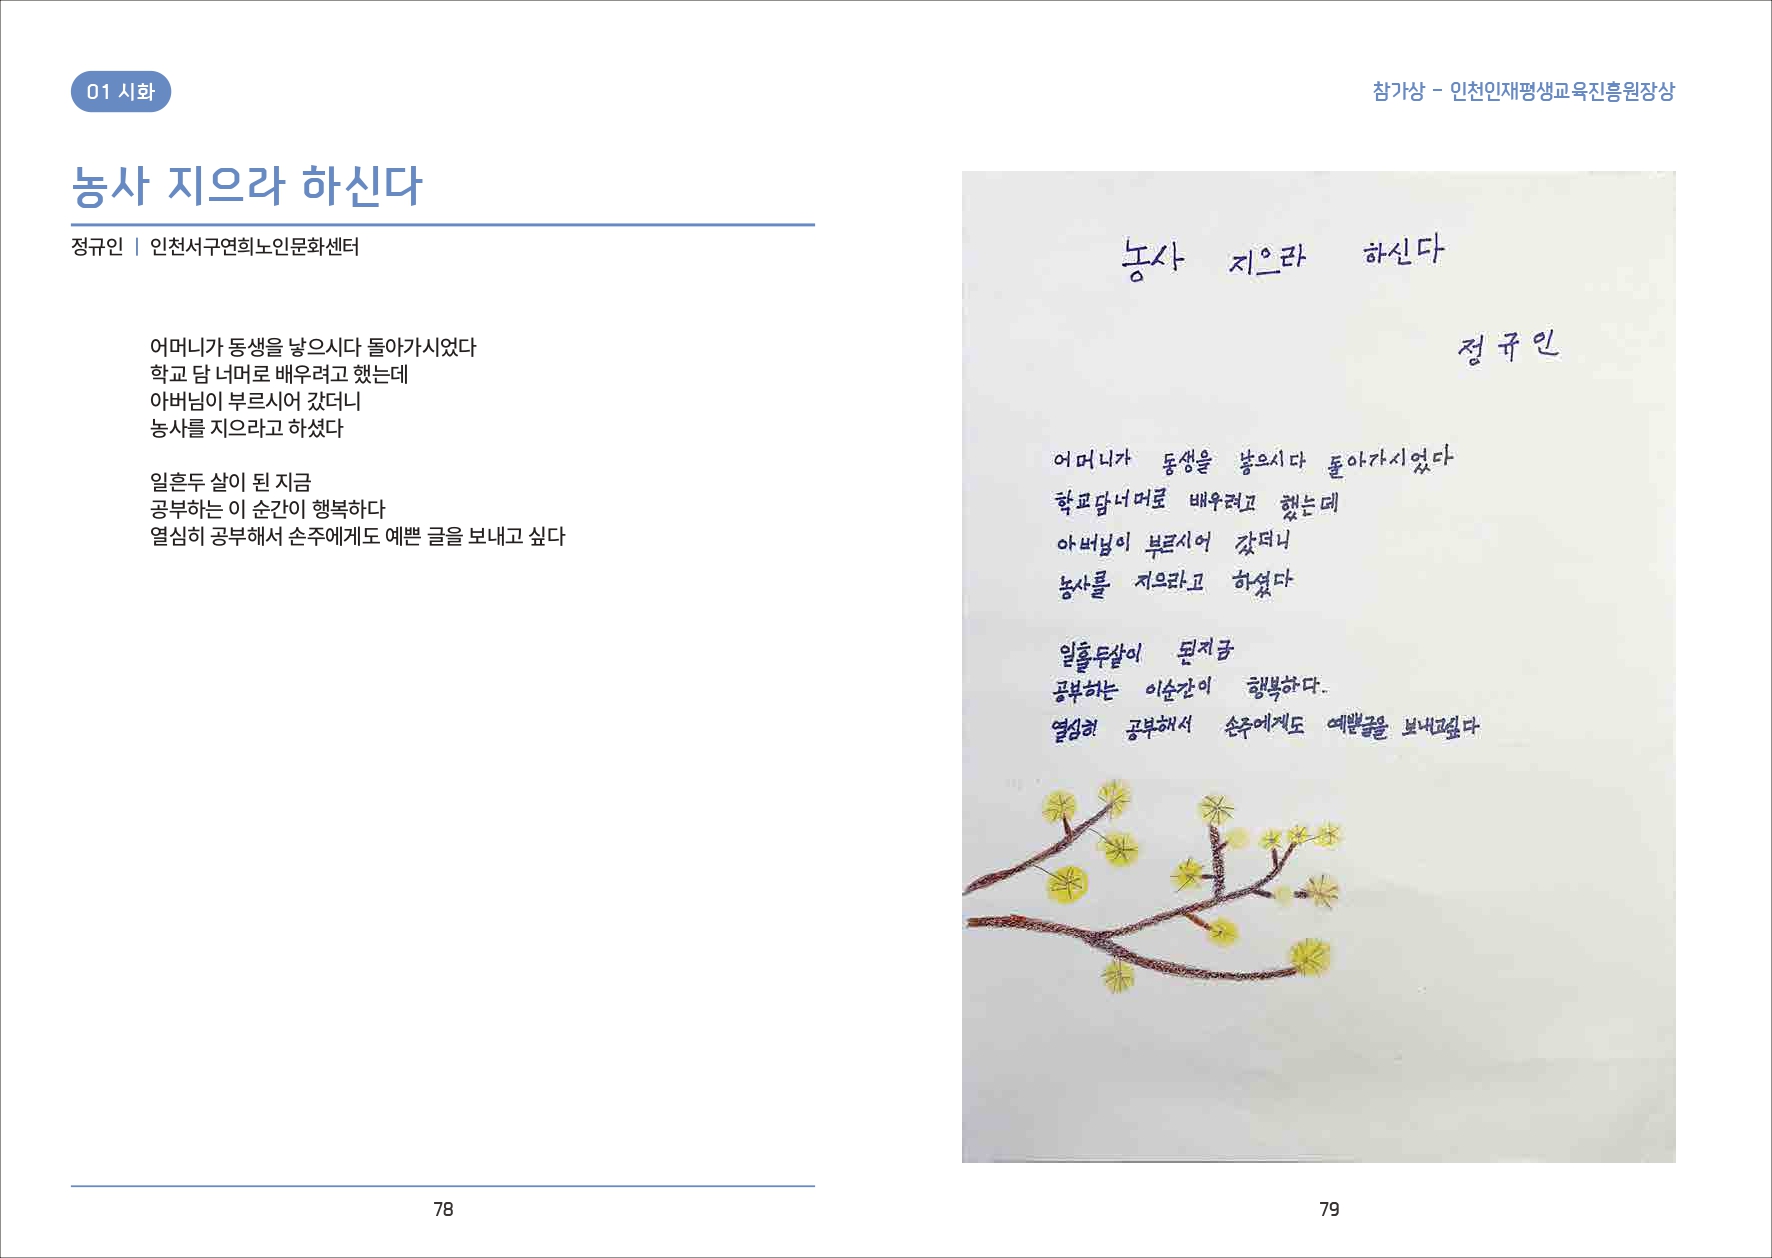 01 시화
농사 지으라 하신다
정규인 | 인천서구연희노인문화센터
어머니가 동생을 낳으시다 돌아가시었다
학교 담 너머로 배우려고 했는데
아버님이 부르시어 갔더니
농사를 지으라고 하셨다
일흔두 살이 된 지금
공부하는 이 순간이 행복하다
열심히 공부해서 손주에게도 예쁜 글을 보내고 싶다
78
참가상 - 인천인재평생교육진흥원장상
농사 지으라 하신다
정규인
어머니가 동생을 낳으시다 돌아가시었다
학교담너머로 배우려고 했는데
아버님이 부르시어 갔더니
농사를 지으라고 하셨다
일흘두살이 된지금
공부하는 이순간이 행복하다.
열심히 공부해서 손주에게도 예쁜글을 보내고싶다
79